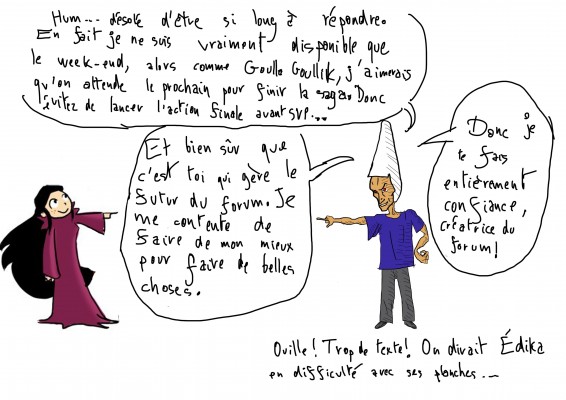 Hum... désolé d'être si long à répondre.
En fait je ne suis vraiment disponible que
le week-end, alors comme Goullo Goullik, j'aimerais
qu'on attende le prochain pour finir la saga. Donc
évitez de lancer l'action finale avant SVP...
Et bien sûr que
c'est toi qui gère le
futur du forum. Je
me contente de
faire de mon mieux
pour faire de belles
choses.
Donc je
te fais
entièrement
confiance,
créatrice du
forum!
Ouille! Trop de texte! On dirait Édika
en difficulté avec ses planches...